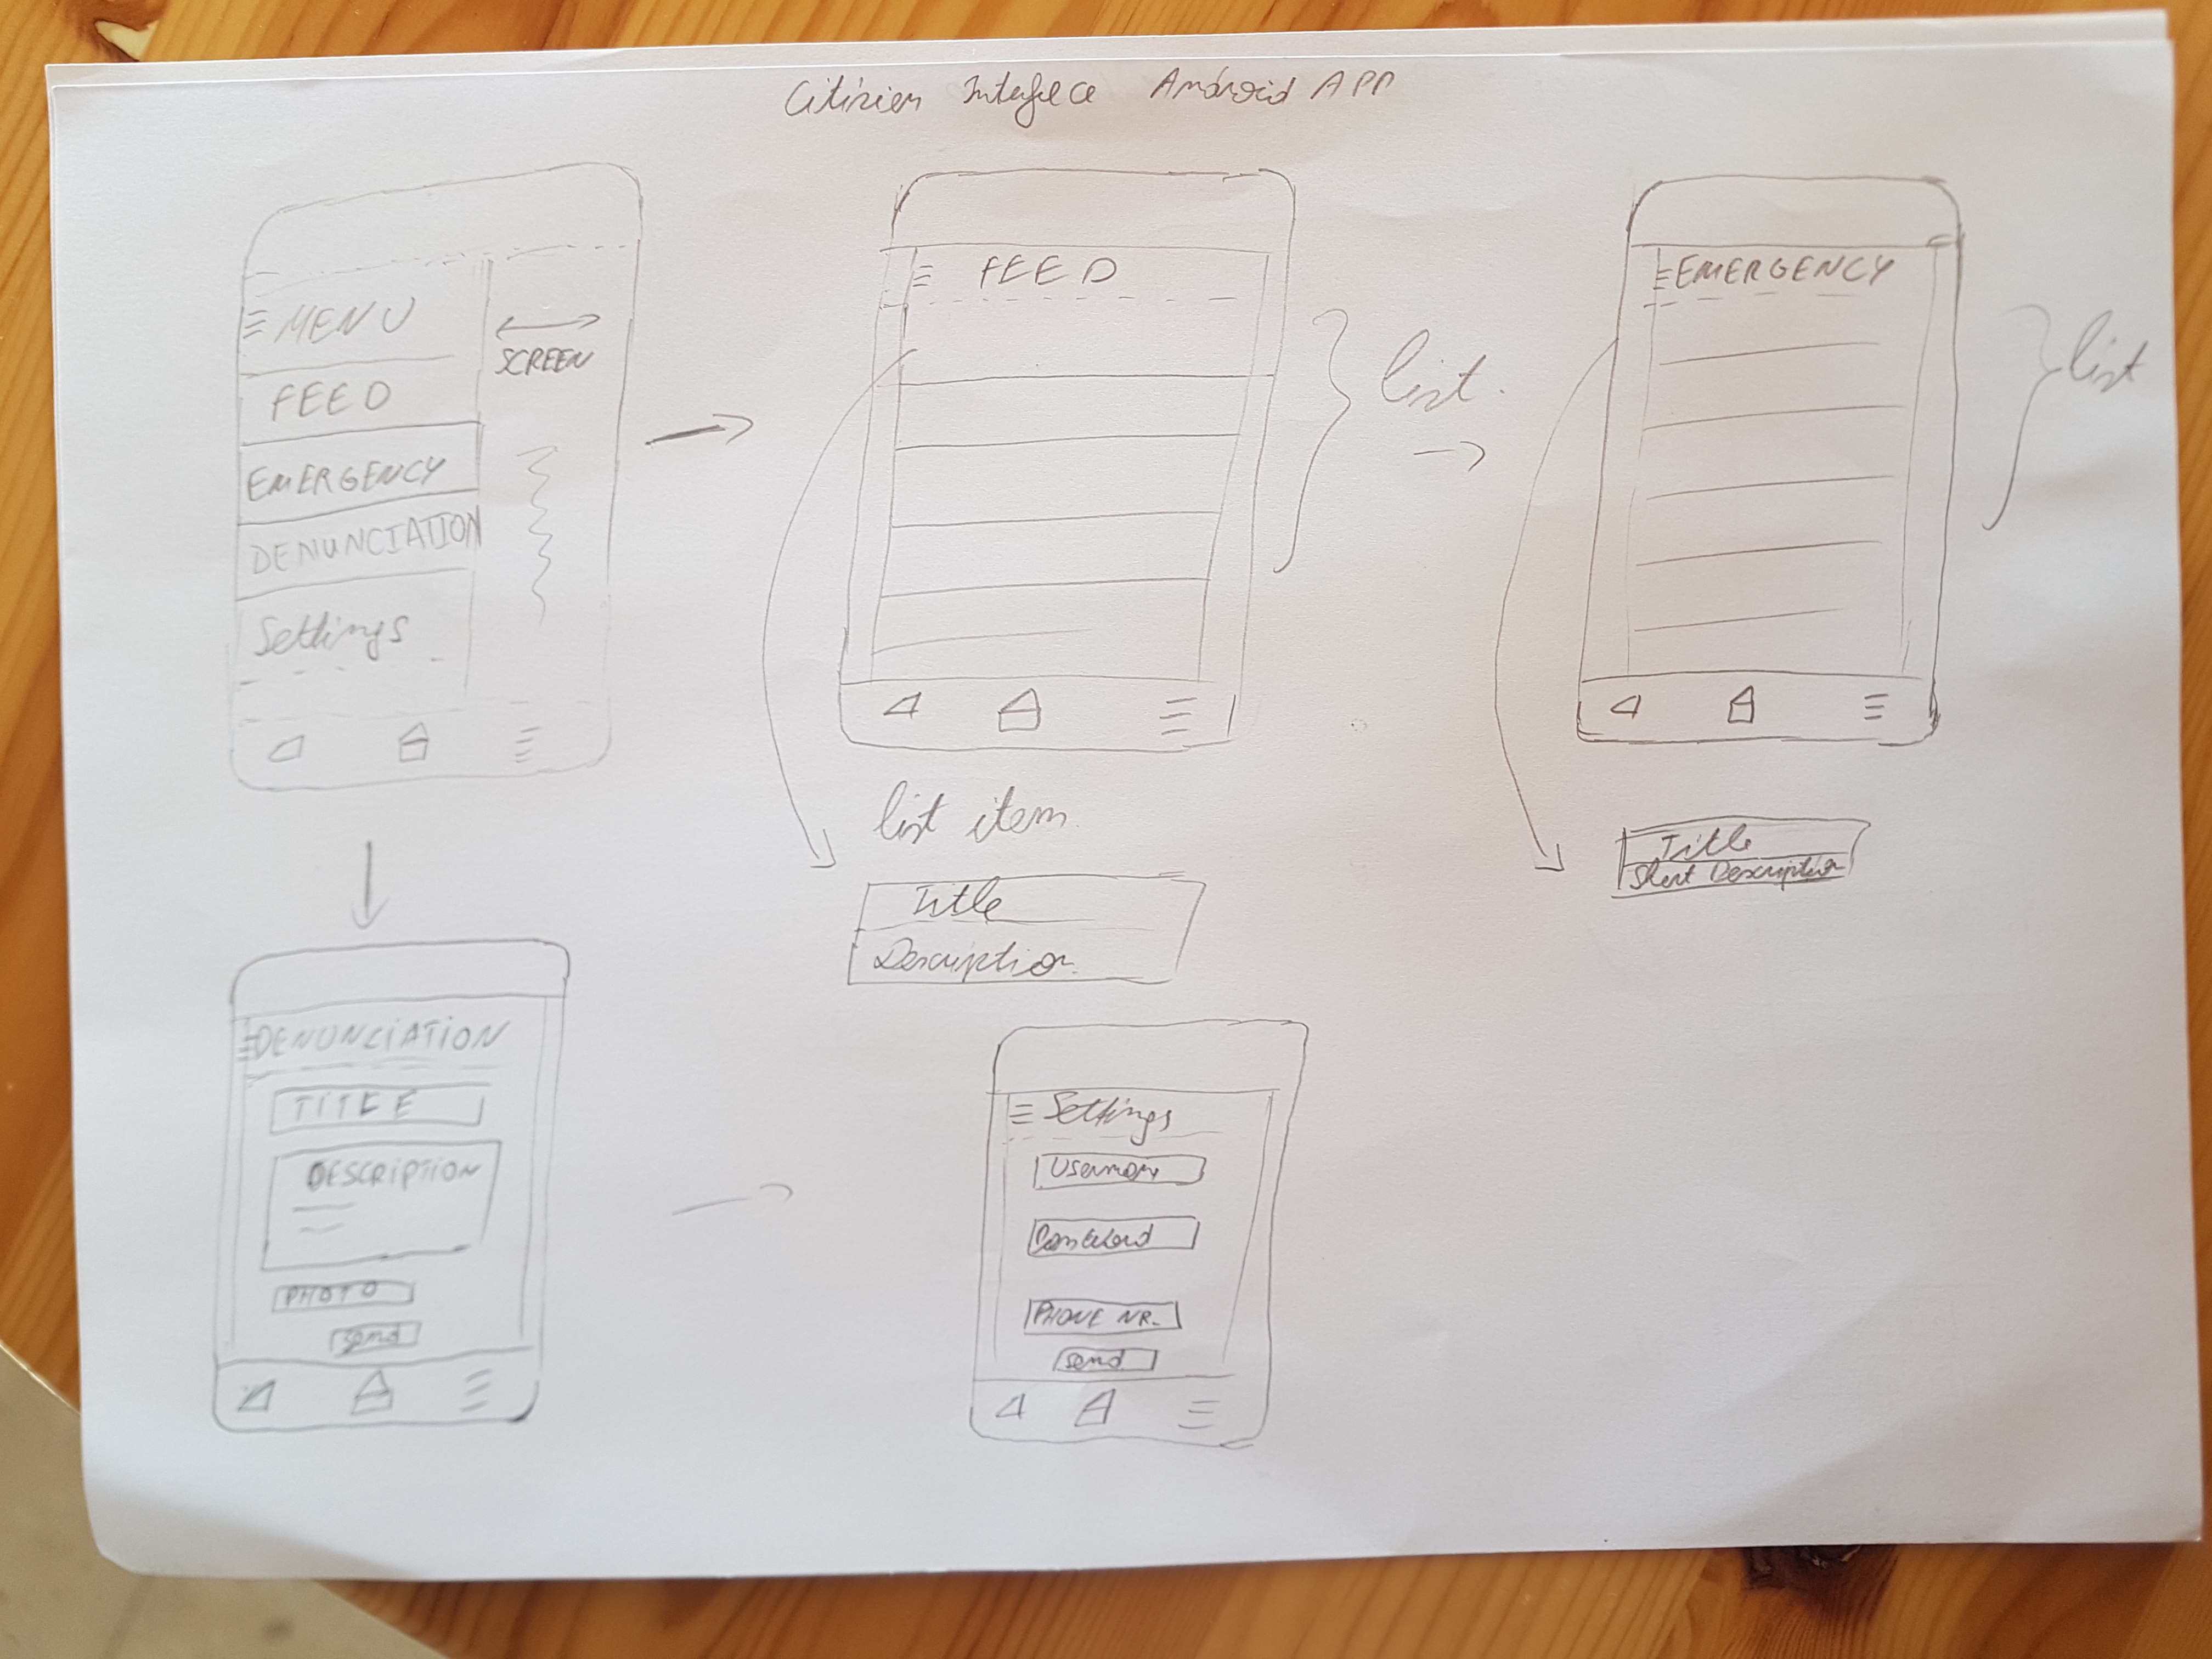 Citizien Interface Android APP
MENU
FEED
EMERGENCY
DENUNCIATION
Settings
SCREEN
FEED
list.
list item.
Title
Description
EMERGENCY
list
Title
Short Description
DENUNCIATION
TITLE
DESCRIPTION
PHOTO
Send
Settings
Username
PHONE NR.
Send